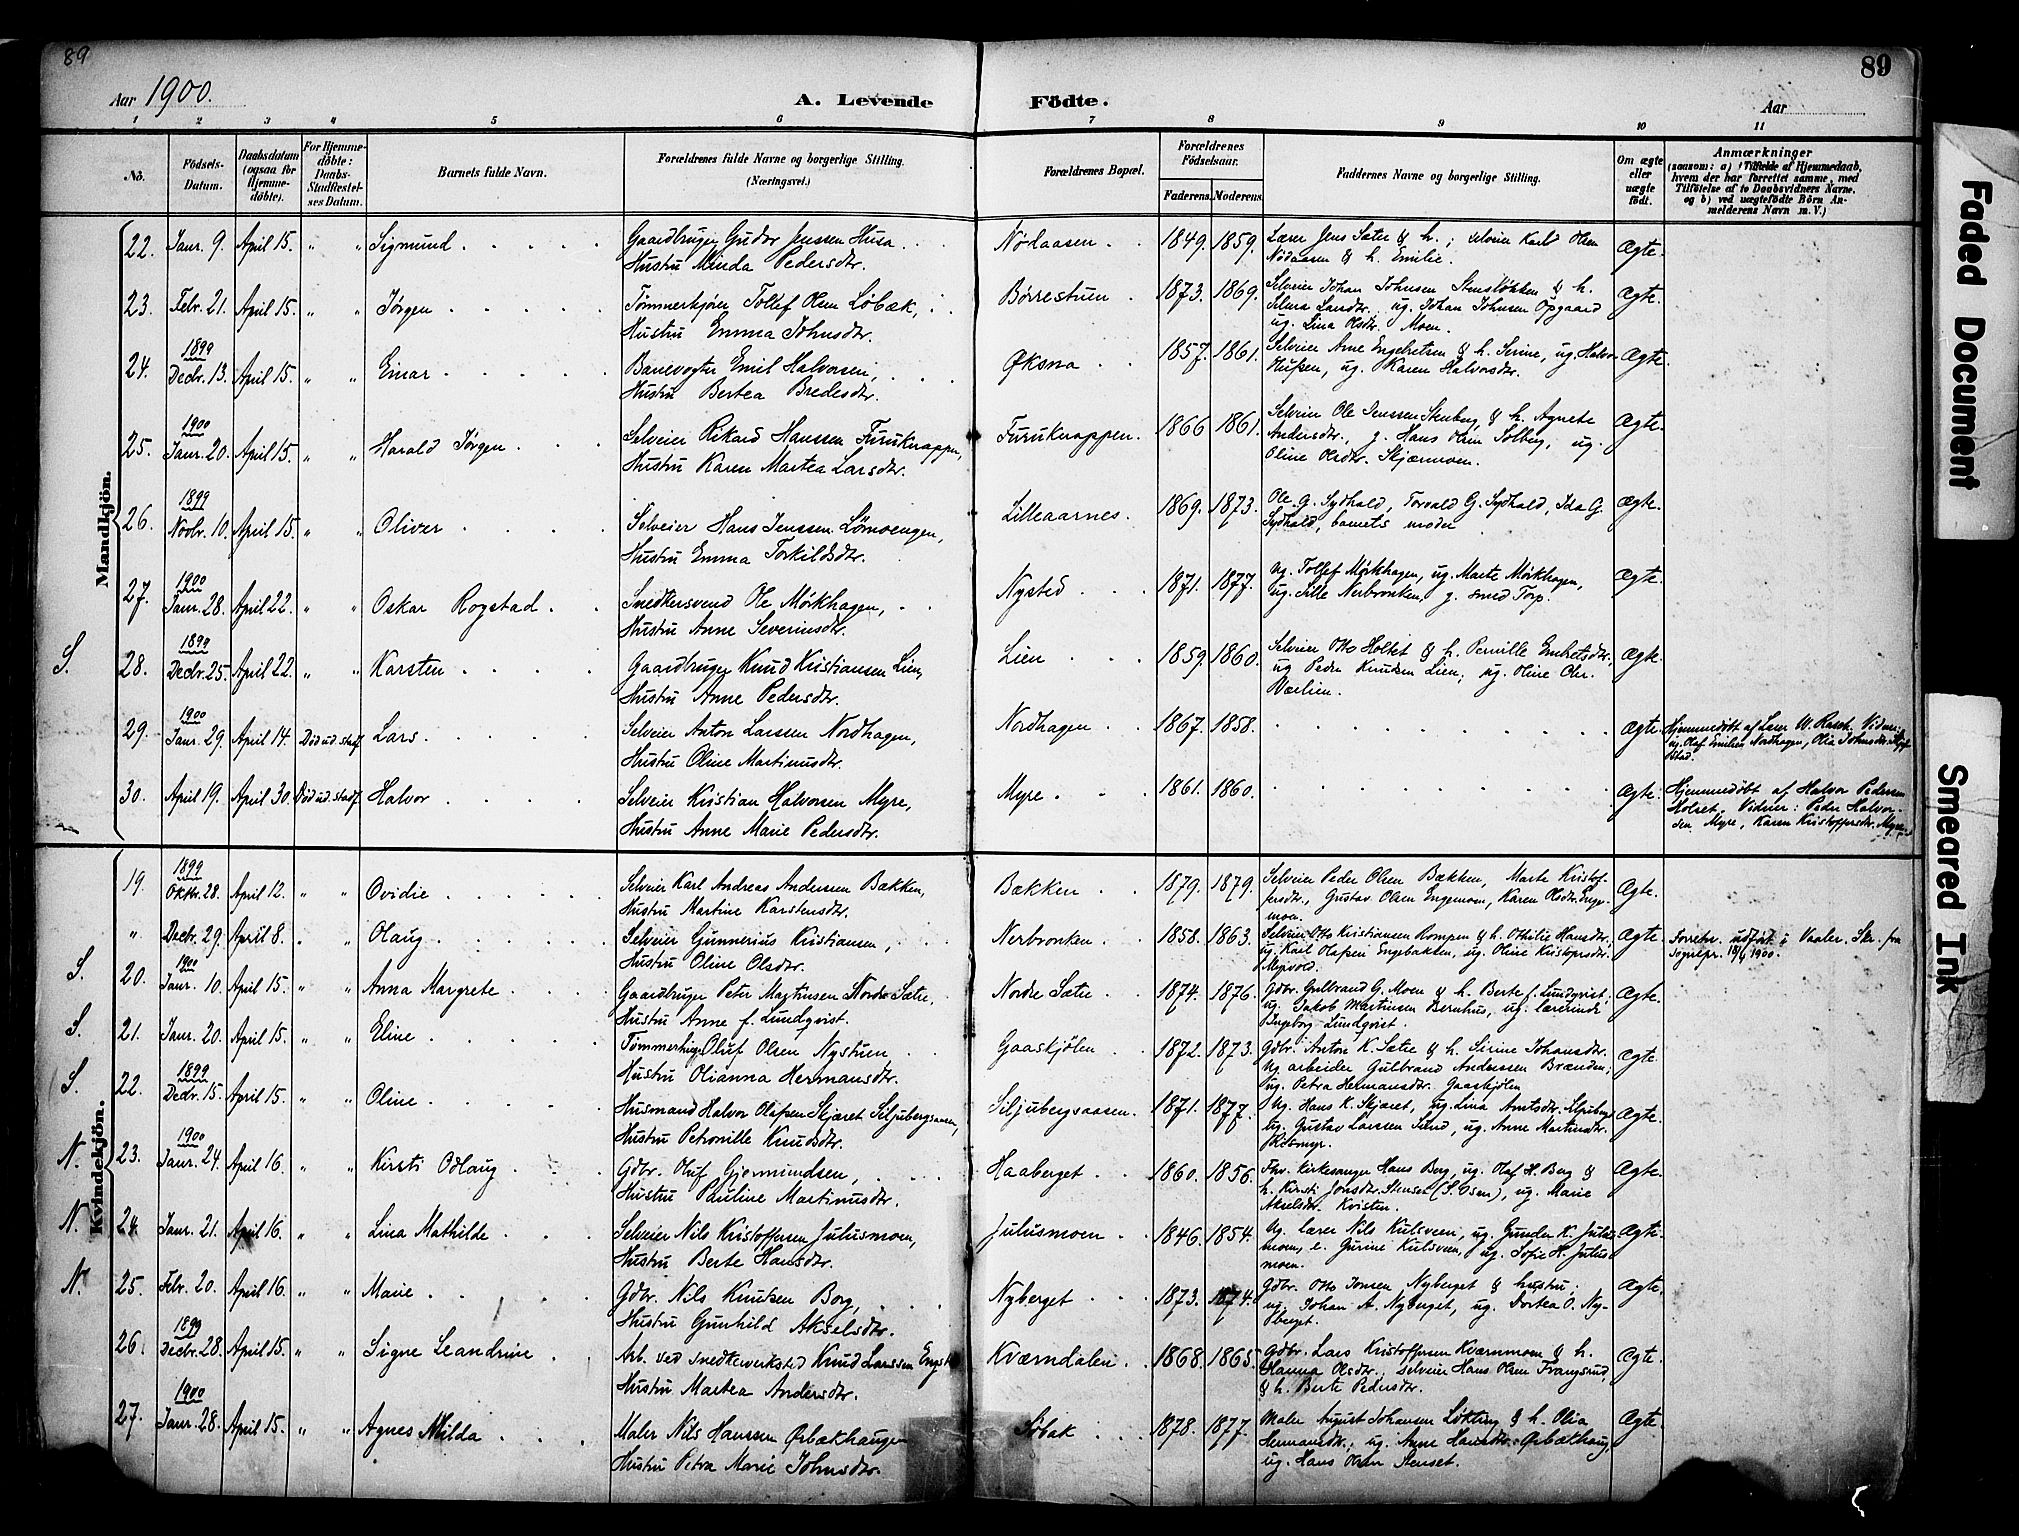 89
89
Aar 1900.
A. Levende Födte.
Aar
1 2 3 4 5 6 7 8 9 10 11
No. Födsels-Datum. Daabsdatum (ogsaa for Hjemme-döbte). For Hjemme-döbte: Daabs-Stadfæstel-ses Datum. Barnets fulde Navn. Forældrenes fulde Navne og borgerlige Stilling. (Næringsvei.) Forældrenes Bopæl. Forældrenes Födselsaar. Faderens. Moderens. Faddernes Navne og borgerlige Stilling. Om ægte eller uægte födt. Anmærkninger
(saasom: a) Tilfælde af Hjemmedaab,
hvem der har forrettet samme, med
Tilföielse af to Daabsvidners Navne.
og b) ved uægtefödte Börn An-
melderens Navn m. V.)
Mandkjön.
22. Janr. 9. April 15. " " Sigmund Gaardbruger Gudor Jenssen Husa Nødaasen 1849. 1859. Lærer Jens Sæter & h.; selveier Karl Olsen Ægte.
Hustru Minda Pedersdtr. Nødaasen & h. Emilie.
23. Febr. 21. April 15. " " Jørgen Tømmerkjører Tollef Olsen Løbæk, Børrestuen 1873. 1869. Selveier Johan Johnsen Stensløkken & h. Ægte.
Hustru Emma Johnsdtr. Selma Larsdtr., ug. Johan Johnsen Opgaard
ug. Lina Olsdtr. Moen.
24. 1899 Decbr. 13. April 15. " " Einar Banevogter Emil Halvorsen, Øksna 1857. 1861. Selveier Arne Engebretsen & h. Serine, ug. Halvor Ægte.
Hustru Bertea Bredesdtr. ug. Karen Halvorsdtr.
25. 1900 Janr. 20. April 15. " " Harald Jørgen Selveier Rikard Hanssen Furuknappen, Furuknappen. 1866 1861. Selveier Ole Jenssen Stenberg & h. Agnete Ægte.
Hustru Karen Martea Larsdtr. Andersdtr., g. Hans Olsen Solberg, ug.
Oline Olsdtr. Skjærmoen.
26. 1899 Novbr. 10. April 15. " " Oliver Selveier Hans Jenssen Lømoengen, Lilleaarnes. 1869. 1873. Ole G. Sydhald, Torvald G. Sydhald, Ida G. Ægte.
Hustru Emma Torkildsdtr. Sydhald, barnets moder
27. 1900 Janr. 28. April 22. " " Oskar Rogstad Snedkersvend Ole Mørkhagen, Nysted 1871. 1877. Ug. Tollef Mørkhagen, ug. Marte Mørkhagen, Ægte.
Hustru Anne Severinsdtr. ug. Sille Nerbronken, g. smed Torp.
S. 28. 1899 Decbr. 25. April 22. " " Karsten Gaardbruger Knud Kristiansen Lien, Lien 1859. 1860. Selveier Otto Holtet & h. Pernille Embretsdtr. Ægte.
Hustru Anne Pedersdtr. ug. Peder Knudsen Lien, ug. Oline Chr.
Værlien.
29. 1900 Janr. 29. April 14. Död ud. stadf. Lars Selveier Anton Larssen Nordhagen, Nordhagen 1867. 1858. Ægte. Hjemmedöbt af Lærer W. Rasch. Vidner:
Hustru Oline Martinusdtr. ug. Olaf Emilsen Nordhagen, Olia Johnsdtr.
30. April 19. April 30. Död ud. stadf. Halvor Selveier Kristian Halvorsen Myre, Myre 1861. 1860. Ægte. Hjemmedøbt af Halvor Pedersen
Hustru Anne Marie Pedersdtr. Holset. Vidner: Peder Halvor-
sen Myre, Karen Kristoffersdtr. Myre.
Kvindekjön.
19. 1899 Oktbr. 28. April 12. " " Ovidie Selveier Karl Andreas Andersen Bækken, Bækken 1879. 1879. Selveier Peder Olsen Bækken, Marte Kristof- Ægte.
Hustru Martine Karstensdtr. fersdtr., Gustav Olsen Engemoen, Karen Olsdtr. Enge-
moen.
" Decbr. 29. April 8. " " Olaug Selveier Gunnerius Kristiansen, Nerbronken 1858. 1863. Selveier Otto Kristiansen Rompen & h. Othilie Hansdtr. Ægte. Forretn. udført i Vaaler. Skr. fra
Hustru Oline Olsdtr. ug. Karl Olafsen Engebakken, ug. Oline Kristofersdtr. Sognepr. 18/4 1900.
Myrvold.
S. 20. 1900 Janr. 10. April 15. " " Anna Margrete Gaardbruger Peter Martinsen Nordre Sætre, Nordre Sætre 1874. 1876. Gdbr. Gulbrand G. Moen & h. Berte f. Lundqvist; Ægte.
Hustru Anne f. Lundqvist. ug. Jakob Martinsen Bernhus, ug. lærerinde
Ingeborg Lundqvist.
S. 21. Janr. 20. April 15. " " Eline Tømmerhugger Oluf Olsen Nystuen Gaaskjølen 1872. 1873. Gdbr. Anton K. Sætre & h. Serine Johansdtr. Ægte.
Hustru Olianna Hermansdtr. Ug. arbeider Gulbrand Anderssen Brænden,
ug. Petra Hermansdtr. Gaaskjølen
S. 22. 1899 Decbr. 15. April 15. " " Oline Husmand Halvor Olafsen Skjæret Siljubergsaasen, Siljubergsaasen. 1871. 1877. Ug. Hans K. Skjæret, ug. Lina Arntsdtr. Siljuberg Ægte.
Hustru Petronille Knudsdtr. ug. Gustav Larssen Sund, ug. Anne Martinsdtr.
N. 23. 1900 Janr. 24. April 16. " " Kirsti Odlaug Gdbr. Oluf Gjermundsen, Haaberget 1860. 1856. Fhv. kirkesanger Hans Berg, ug. Olaf H. Berg & Ægte.
Hustru Pauline Martinusdtr. h. Kirsti Jonsdtr. Stenset (S. Osen), ug. Marie
Akselsdtr. Kvisten.
N. 24. Janr. 21. April 16. " " Lina Mathilde Selveier Nils Kristoffersen Julusmoen, Julusmoen 1846. 1854. Ug. lærer Nils Kulsveen, ug. Gunder K. Julus- Ægte.
Hustru Berte Hansdtr. moen, e. Gurine Kulsveen, ug. Sofie H. Julus-
moen.
N. 25. Febr. 20. April 16. " " Marie Gdbr. Nils Knutsen Borg, Nyberget 1873. 1874. Gdbr. Otto Jonsen Nyberget & hustru; Ægte.
Hustru Gunhild Akselsdtr. ug. Johan A. Nyberget, ug. Dortea O. Ny-
berget.
26. 1899 Decbr. 28. April 15. " " Signe Leandrine Arb. ved snedkerverksted Knud Larssen Kværndalen 1868. 1865. Gdbr. Lars Kristoffersen Kværnmoen & h. Ægte.
Hustru Martea Andersdtr. Hanna Olsdtr.; selveier Hans Olsen Frangsrud,
& h. Berte Pedersdtr.
27. 1900 Janr. 28. April 15. " " Agnes Milda Maler Nils Hanssen Ørbækhaugen Løbak 1878. 1877. Maler August Johansen Løkting & h. Olia Ægte.
Hustru Petra Marie Johnsdtr. Hermansdtr.; ug. Anne Hansdtr. Ørbækhaug,
ug. Hans Olsen Stenset.
Faded Document
Smeared Ink